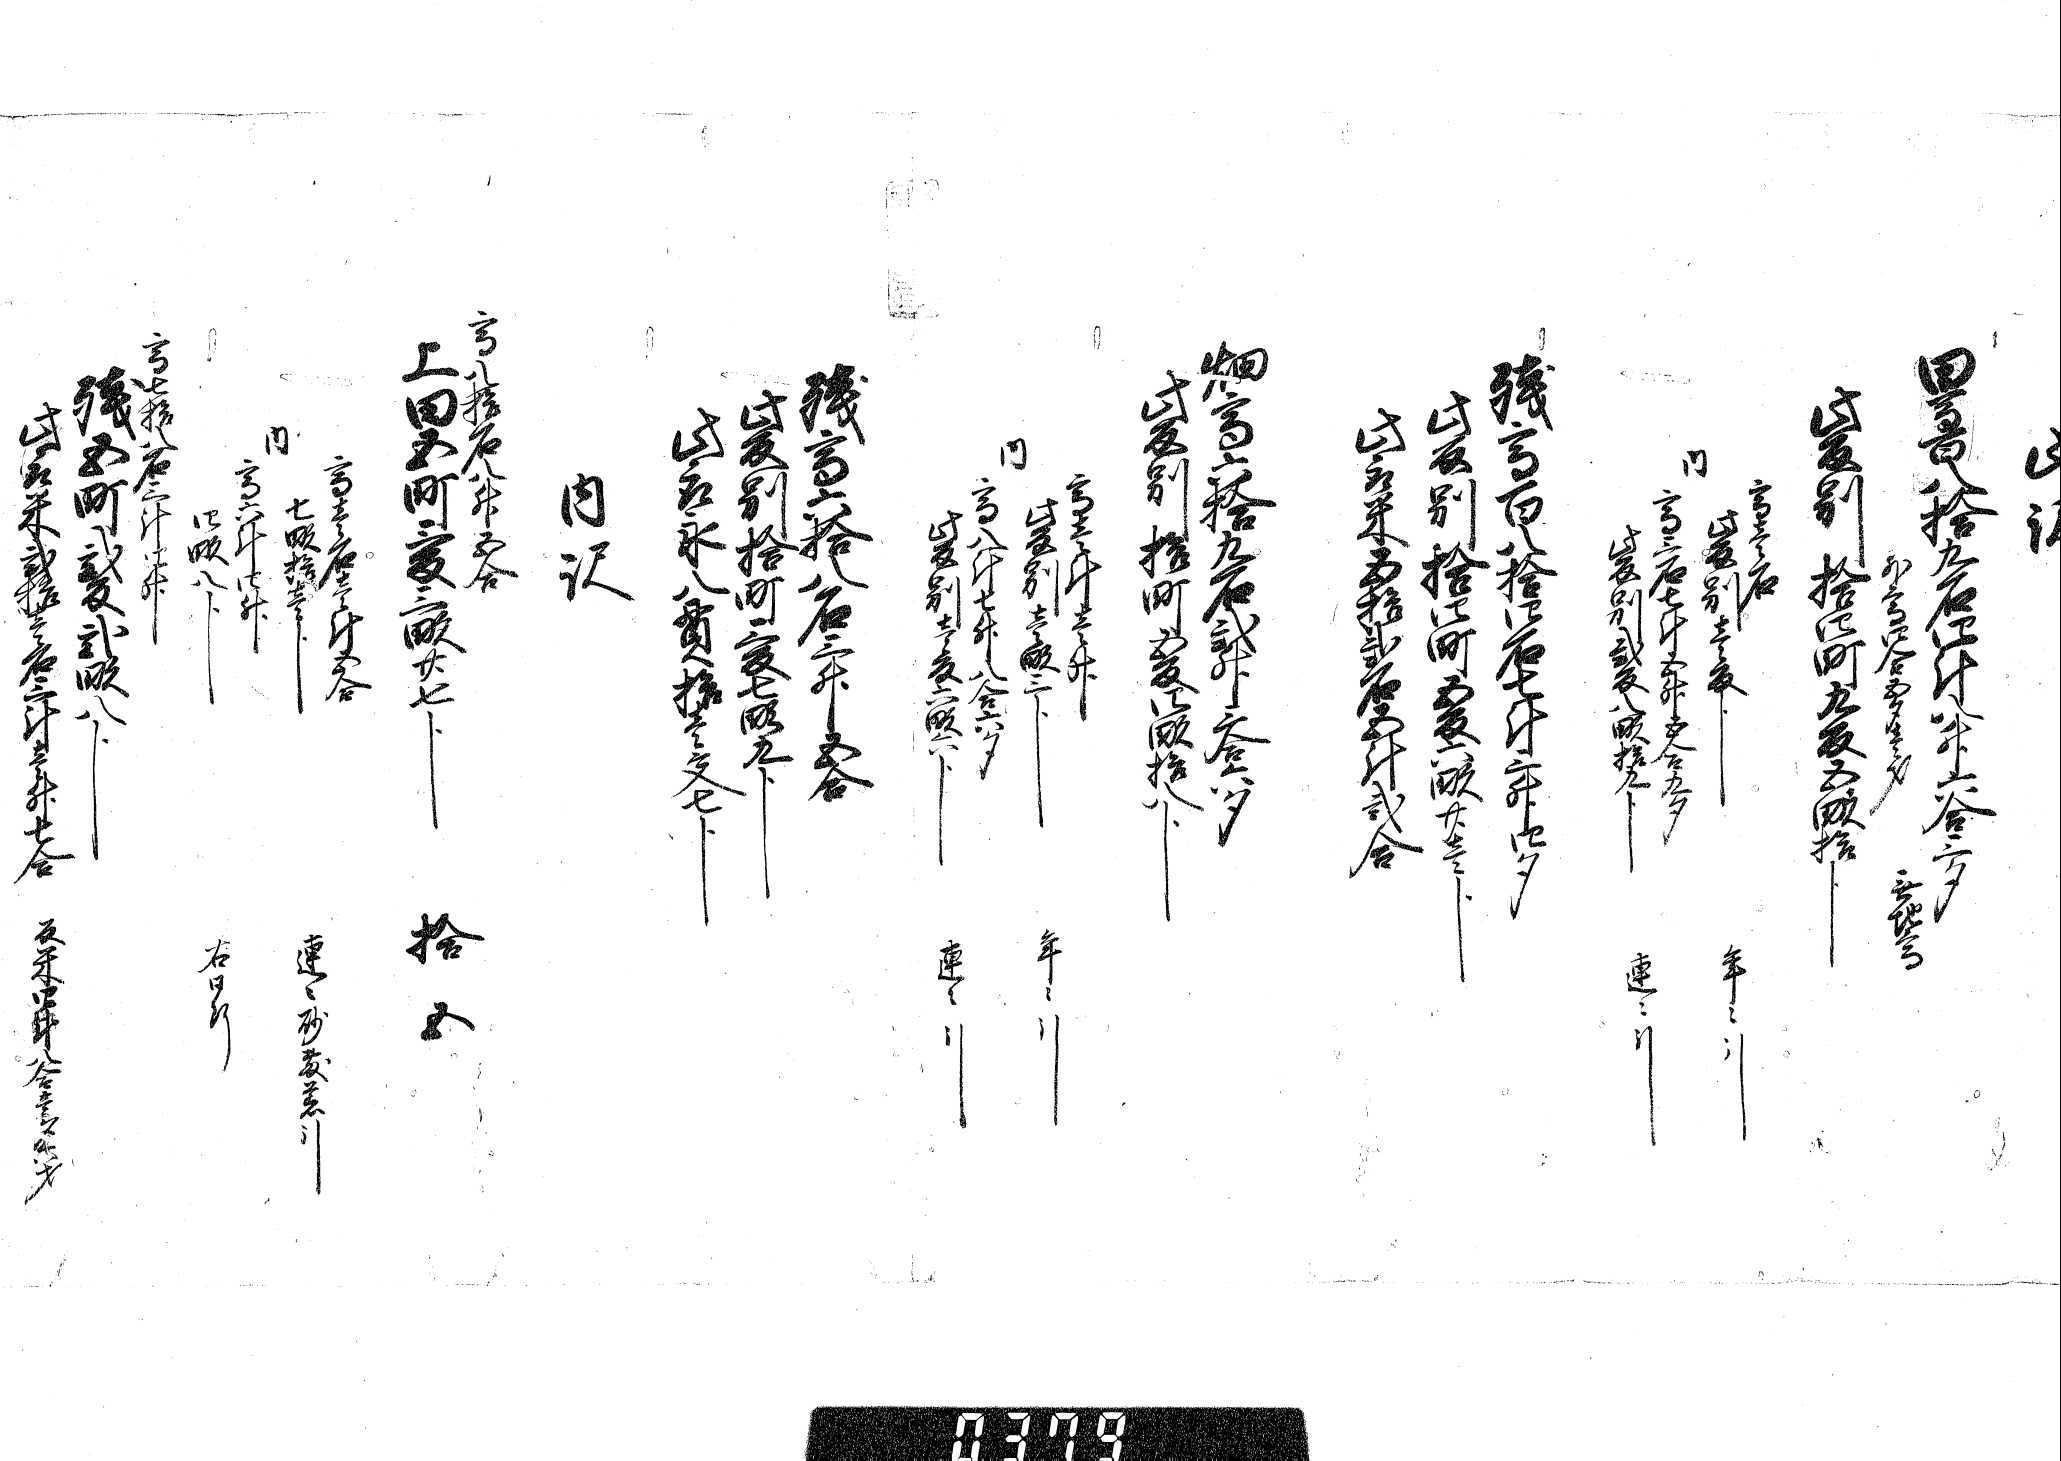 此訳
田高百八拾九石四斗八升六合三夕
外高四合五夕壱才 無地高
此反別拾四町九反五畝拾卜
高壱石
此反別壱反卜 年々引
内
高三石七斗五升五合九夕
此反別弐反八畝拾九卜 連々引
残高百八拾四石七斗三升四夕
此反別拾四町五反六畝廿壱卜
此取米五拾弐石五斗弐合
畑高六拾九石弐升三合六夕
此反別拾町五反四畝拾八卜
高壱斗壱升
此反別壱畝三卜 年々引
内
高八斗七升八合六夕
此反別壱反六畝六卜 連々引
残高六拾八石三升五合
此反別拾町三反七畝九卜
此取永八貫八拾壱文七卜
内訳
高八拾石八升五合
上田五町三反三畝廿七卜 拾五
高壱石壱斗五合
七畝拾壱卜 連々砂置荒引
内
高六斗四升
四畝八卜 右同断
高七拾八石三斗四升
残五町弐反弐畝八卜
此取米弐拾壱石三斗壱升七合 反米四斗八合